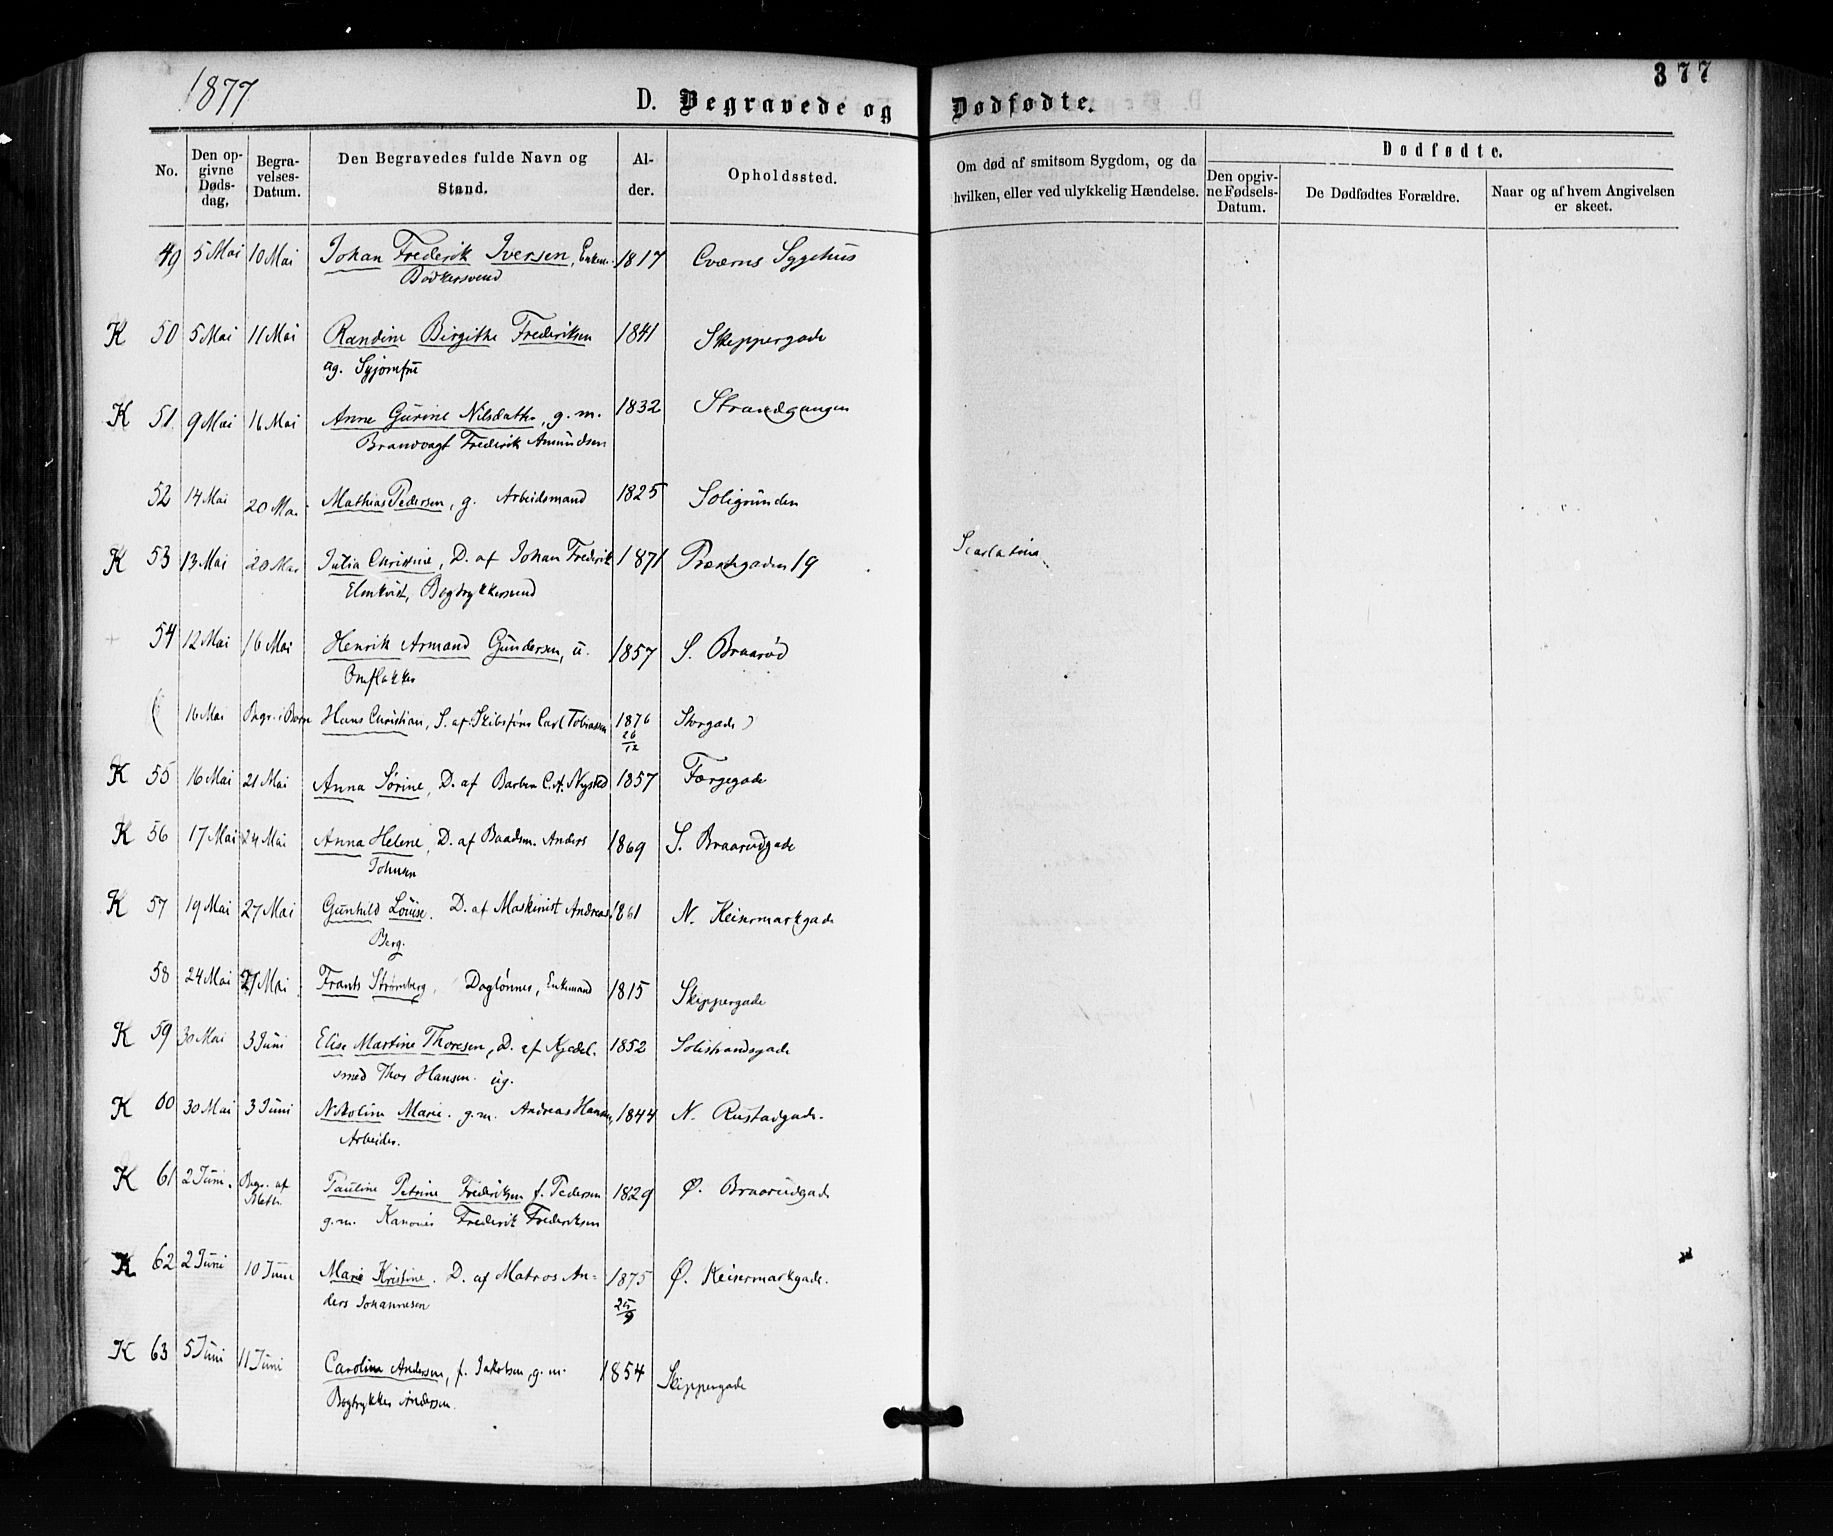 1877
377
D. Begravede og Dødfødte.
No.
Den opgivne Dødsdag,
Begravelses-Datum.
Den Begravedes fulde Navn og Stand.
Alder.
Opholdssted.
Om død af smitsom Sygdom, og da hvilken, eller ved ulykkelig Hændelse.
Dødfødte.
Den opgivne Fødsels-Datum.
De Dødfødtes Forældre.
Naar og af hvem Angivelsen er skeet.
49 5 Mai 10 Mai Johan Frederik Iversen, Enkem. 1817 Cværns Sygehus
Bødkersvend
K 50 5 Mai 11 Mai Randine Birgithe Frederiksen 1841 Skippergade
ug. Syjomfru
K 51. 9 Mai 16 Mai Anne Gurine Nilsdatter, g. m. 1832 Strandgangen
Brandvagt Frederik Amundsen
52 14 Mai 20 Mai Mathias Pedersen, g. Arbeidsmand 1825 Soligrunden
K 53 13 Mai 20 Mai Julia Christine, D. af Johan Frederik 1871 Præstegaden 19 Scarlatina
Elmkvist, Bogtrykkersvend
54 12 Mai 16 Mai Henrik Armand Gundersen, u. 1857 S. Braarød
Omflakker
( 16 Mai Begr. i Borre Hans Christian, S. af Skibsføre Carl Tobiassen 1876 Storgade )
26/12
K 55 16 Mai 21 Mai Anna Sørine, D. af Barber C. A. Nysted 1857 Færgegade
K 56 17 Mai 24 Mai Anna Helene, D. af Baadsm. Anders 1869 S. Braarudgade
Johnsen
K 57 19 Mai 27 Mai Gunhild Louise. D. af Maskinist Andreas 1861 N. Keisermarkgade
Berg.
58 24 Mai 27 Mai Frants Strømberg, Daglønner, Enkemand 1815 Skippergade
K 59 30 Mai 3 Juni Elise Martine Thoresen, D. af Kjedel- 1852 Solistrandsgade
smed Thor Hansen. ug.
K 60 30 Mai 3 Juni Nikoline Marie. g. m. Andreas Hansen, 1844 N. Rustadgade.
Arbeider.
K 61 2 Juni. Begr. af Meth. Pauline Petrine Frederiksen f. Pedersen 1829 Ø. Braarudgade
g. m. Kanoner Frederik Frederiksen
K 62 2 Juni 10 Juni Marie Kristine. D. af Matros An- 1875 Ø. Keisermarkgade.
ders Johannesen 25/9
K 63 5 Juni 11 Juni Carolina Andersen, f. Jakobsen, g. m. 1854 Skippergade
Bogtrykker Andersen.